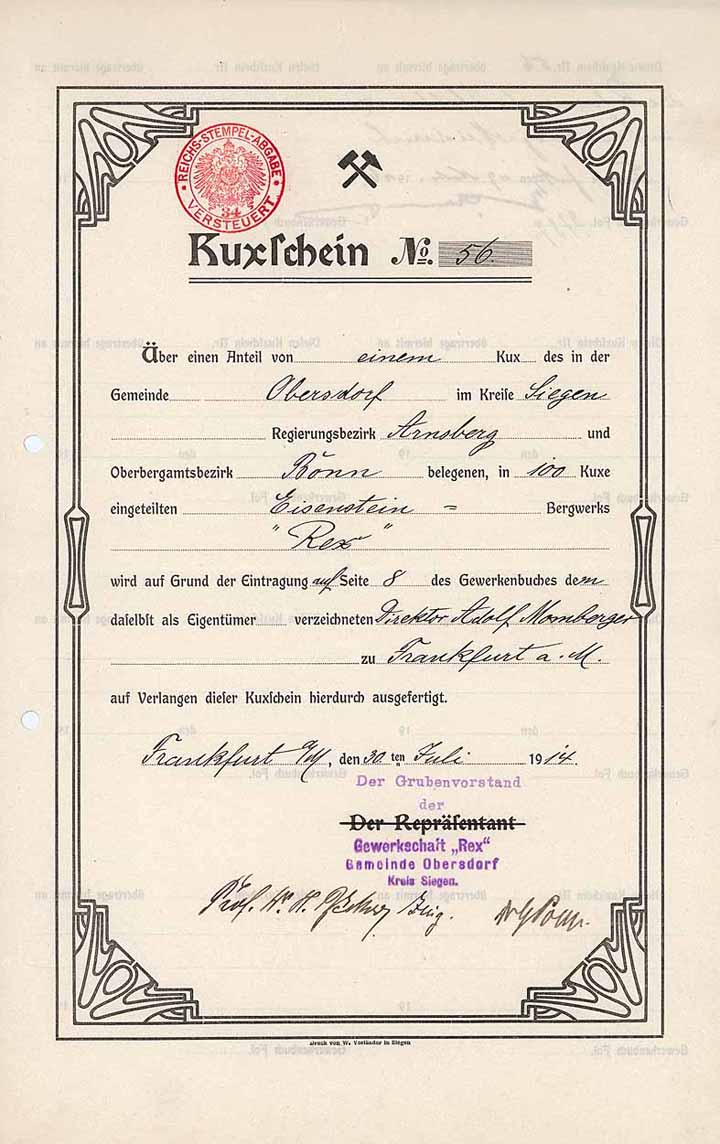 REICHS-STEMPEL-ABGABE
34
VERSTEUERT
Kuxſchein No. 56.
Über einen Anteil von einem Kux des in der
Gemeinde Obersdorf im Kreiſe Siegen
Regierungsbezirk Arnsberg und
Oberbergamtsbezirk Bonn belegenen, in 100 Kuxe
eingeteilten Eisenstein = Bergwerks
"Rex"
wird auf Grund der Eintragung auf Seite 8 des Gewerkenbuches dem
daſelbſt als Eigentümer verzeichneten Direktor Adolf Momberger
zu Frankfurt a. M.
auf Verlangen dieſer Kuxſchein hierdurch ausgefertigt.
Frankfurt a/M, den 30.ten Juli 1914.
Der Grubenvorstand
der
Der Repräſentant
Gewerkschaft „Rex"
Gemeinde Obersdorf
Kreis Siegen.
Prof.
Druck von W. Vorländer in Siegen